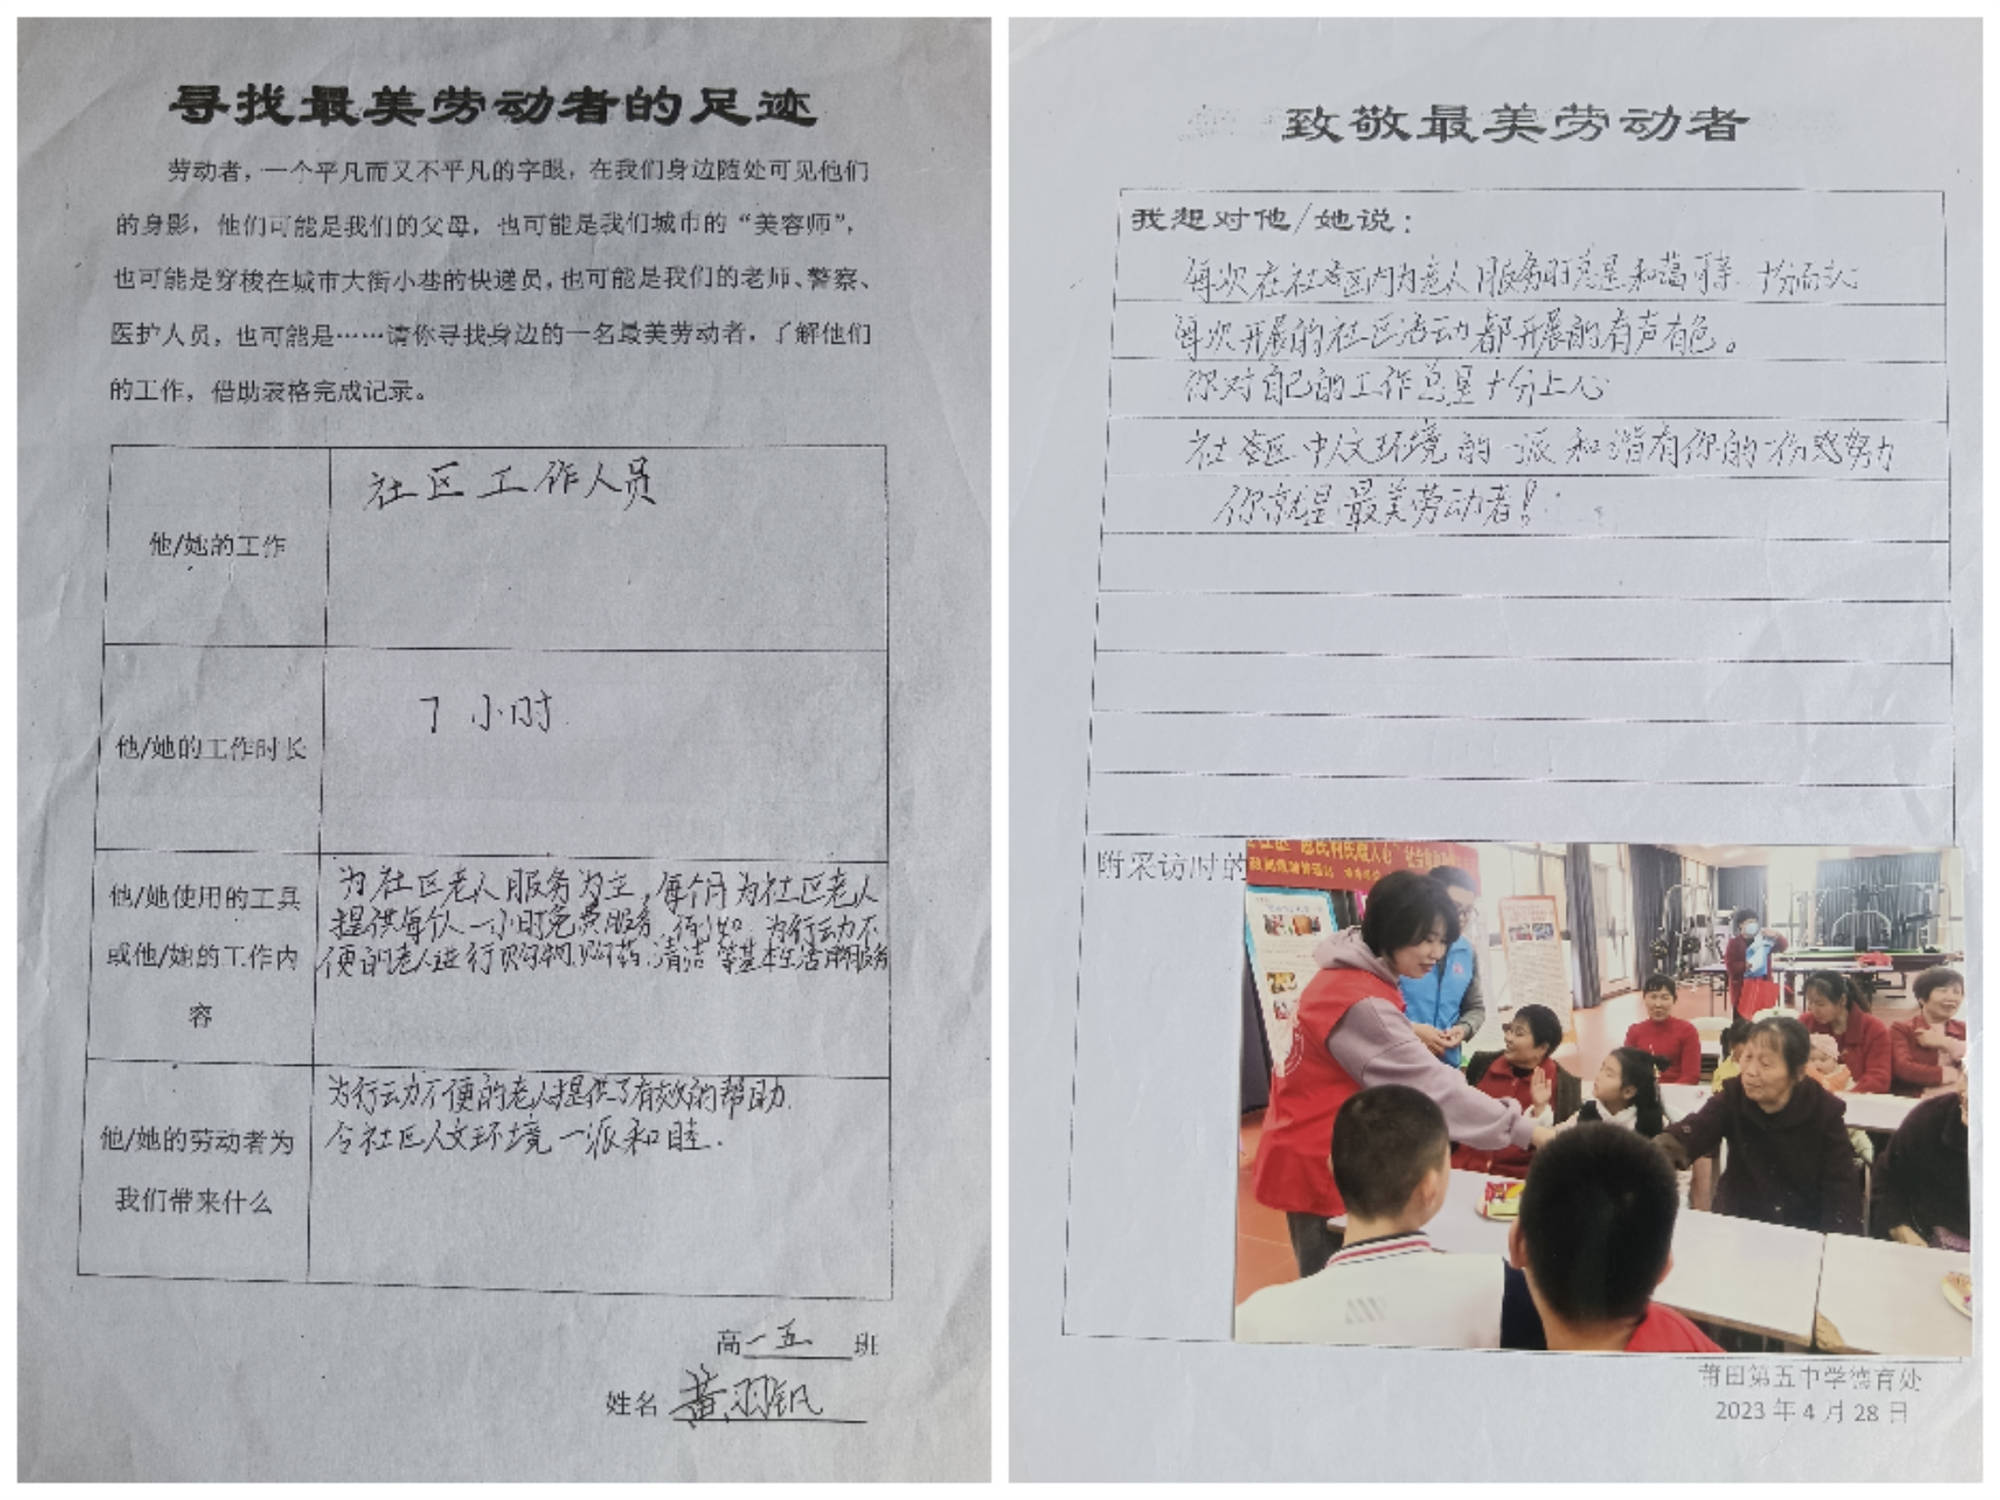 寻找最美劳动者的足迹
劳动者，一个平凡而又不平凡的字眼，在我们身边随处可见他们
的身影，他们可能是我们的父母，也可能是我们城市的“美容师”，
也可能是穿梭在城市大街小巷的快递员，也可能是我们的老师、警察、
医护人员，也可能是……请你寻找身边的一名最美劳动者，了解他们
的工作，借助表格完成记录。
他/她的工作
社区工作人员
他/她的工作时长
7 小时
他/她使用的工具
或他/她的工作内
容
为社区老人服务为主，每个月为社区老人
提供每人一小时免费服务，例如：为行动不
便的老人进行购物、购药、清洁等基本生活服务
他/她的劳动者为
我们带来什么
为行动不便的老人提供了有效的帮助.
令社区人文环境一派和睦.
高一五班
姓名 黄羽钒
致敬最美劳动者
我想对他/她说：
每次在社区内为老人服务时总是和蔼可亲.十分耐心
每次开展的社区活动都开展的有声有色。
你对自己的工作总是十分上心
社区中人文环境的一派和谐有你的一份努力
你就是最美劳动者！
附采访时的
惠民利民暖人心
莆田第五中学德育处
2023 年 4 月 28 日